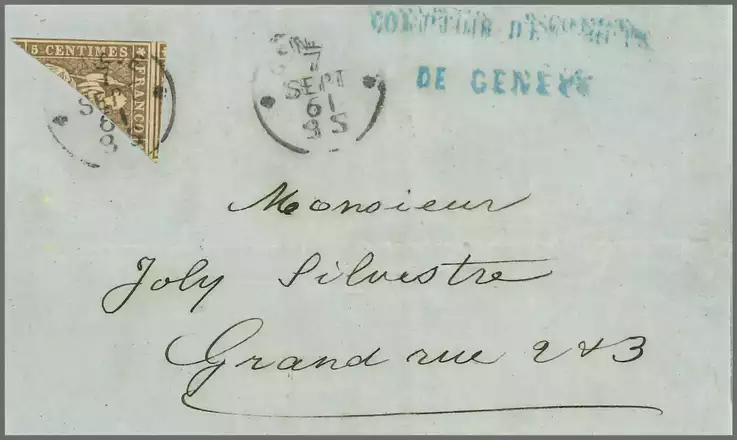 5 CENTIMES
FRANCO
COMPTOIR D'ESCOMPTE
DE GENEVE
SEPT
Monsieur
Joly Silvestre
Grand rue 2 & 3